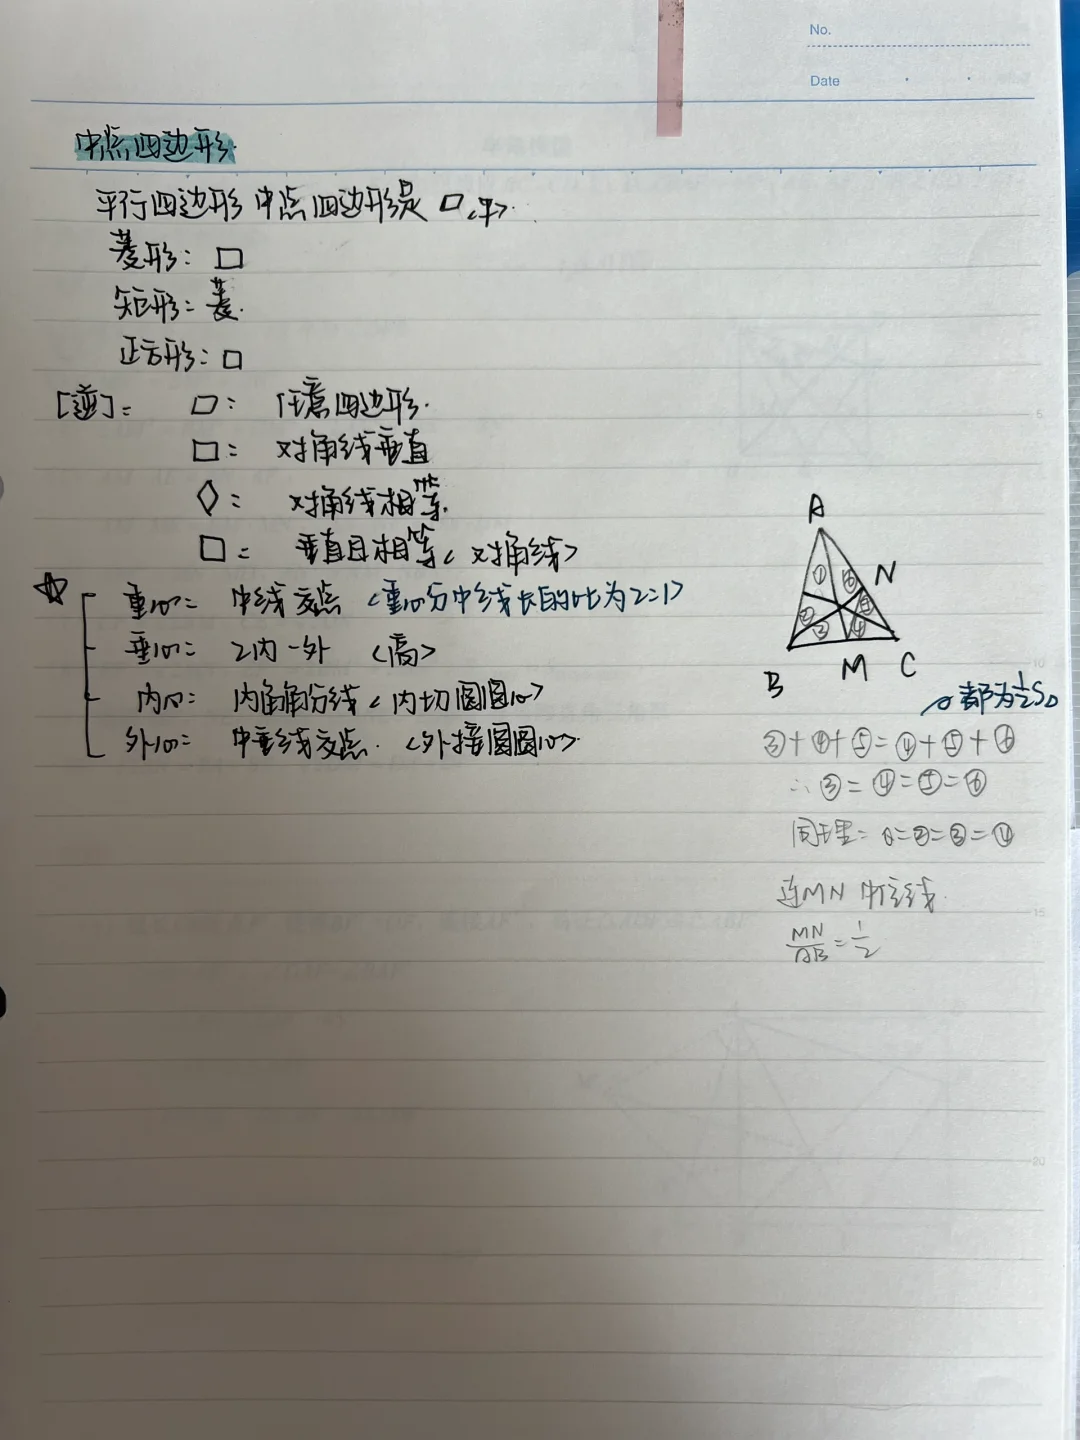 No.
Date
中点四边形
平行四边形中点四边形是▱<平>.
菱形: □
矩形: 菱.
正方形: □
[逆]: ▱: 任意四边形.
□: 对角线垂直
◇: 对角线相等.
□: 垂直且相等<对角线>
☆ 重心: 中线交点 <重心分中线长的比为2:1>
垂心: 2内一外 <高>
内心: 内角角分线<内切圆圆心>
外心: 中垂线交点. <外接圆圆心>
A
① ⑥ N
② ⑤
③ ④
B M C
都为½S△
③+④+⑤=④+⑤+⑥
∴③=④=⑤=⑥
同理: ①=②=③=④
连MN 中位线.
MN/AB=1/2
5
10
15
20